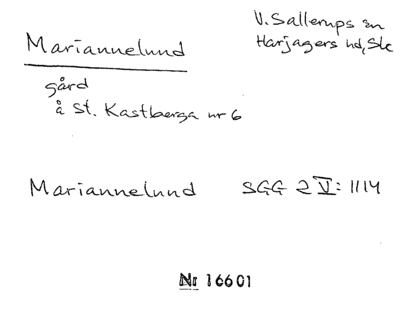 Mariannelund
V. Sallerups sn
Harjagers hd, Sk
gård
å St. Kastberga nr 6
Mariannelund SGG 2 V: 1114
Nr 16601